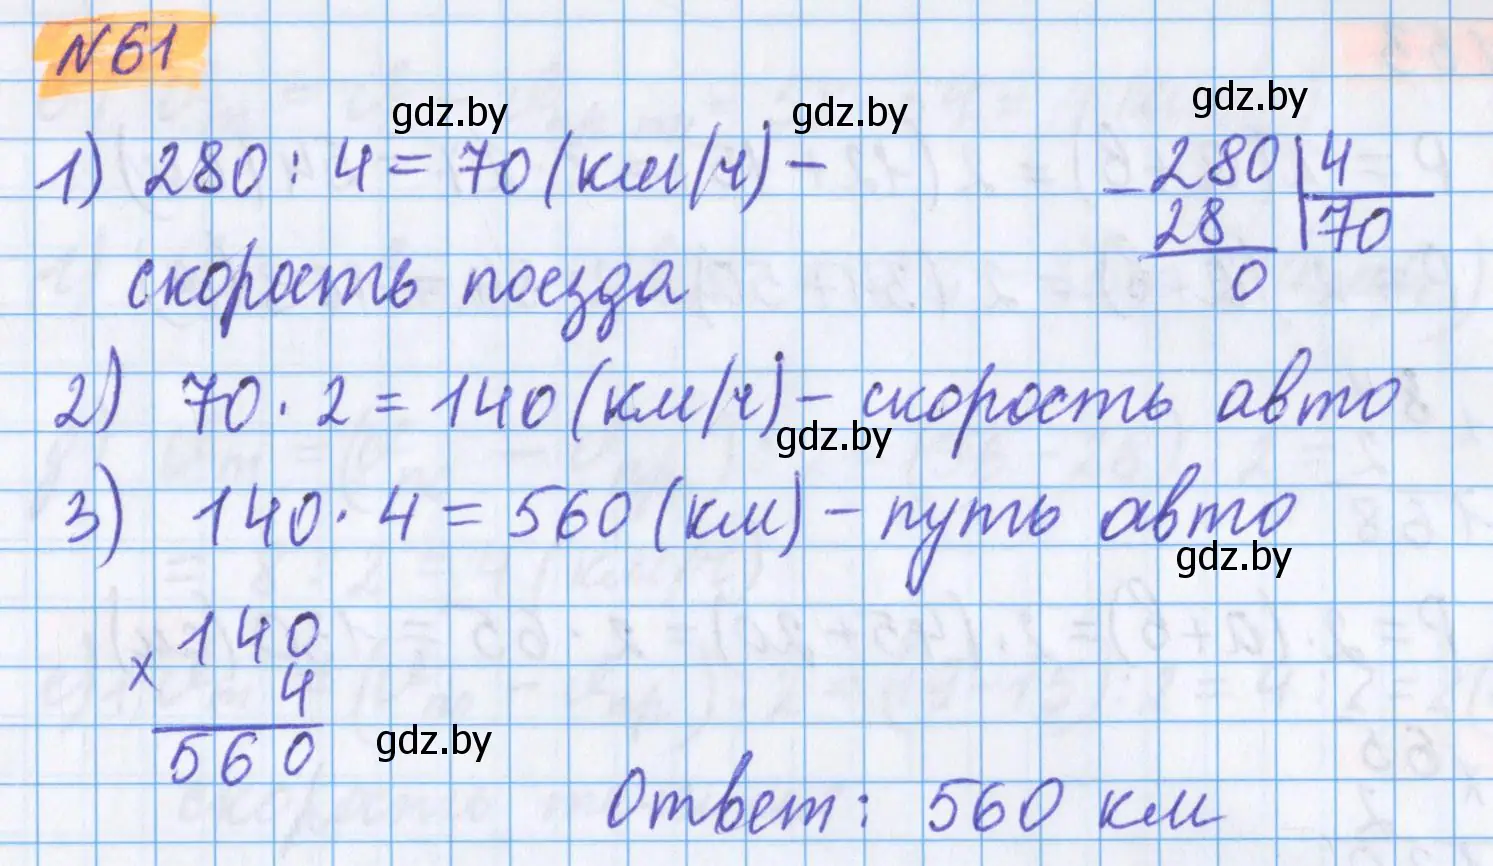 №61
gdz.by gdz.by gdz.by
1) 280 : 4 = 70 (км/ч) –
скорость поезда
– 280 | 4
28 | 70
0
2) 70 · 2 = 140 (км/ч) – скорость авто
gdz.by
3) 140 · 4 = 560 (км) – путь авто
gdz.by
140
× 4
560
gdz.by
Ответ: 560 км